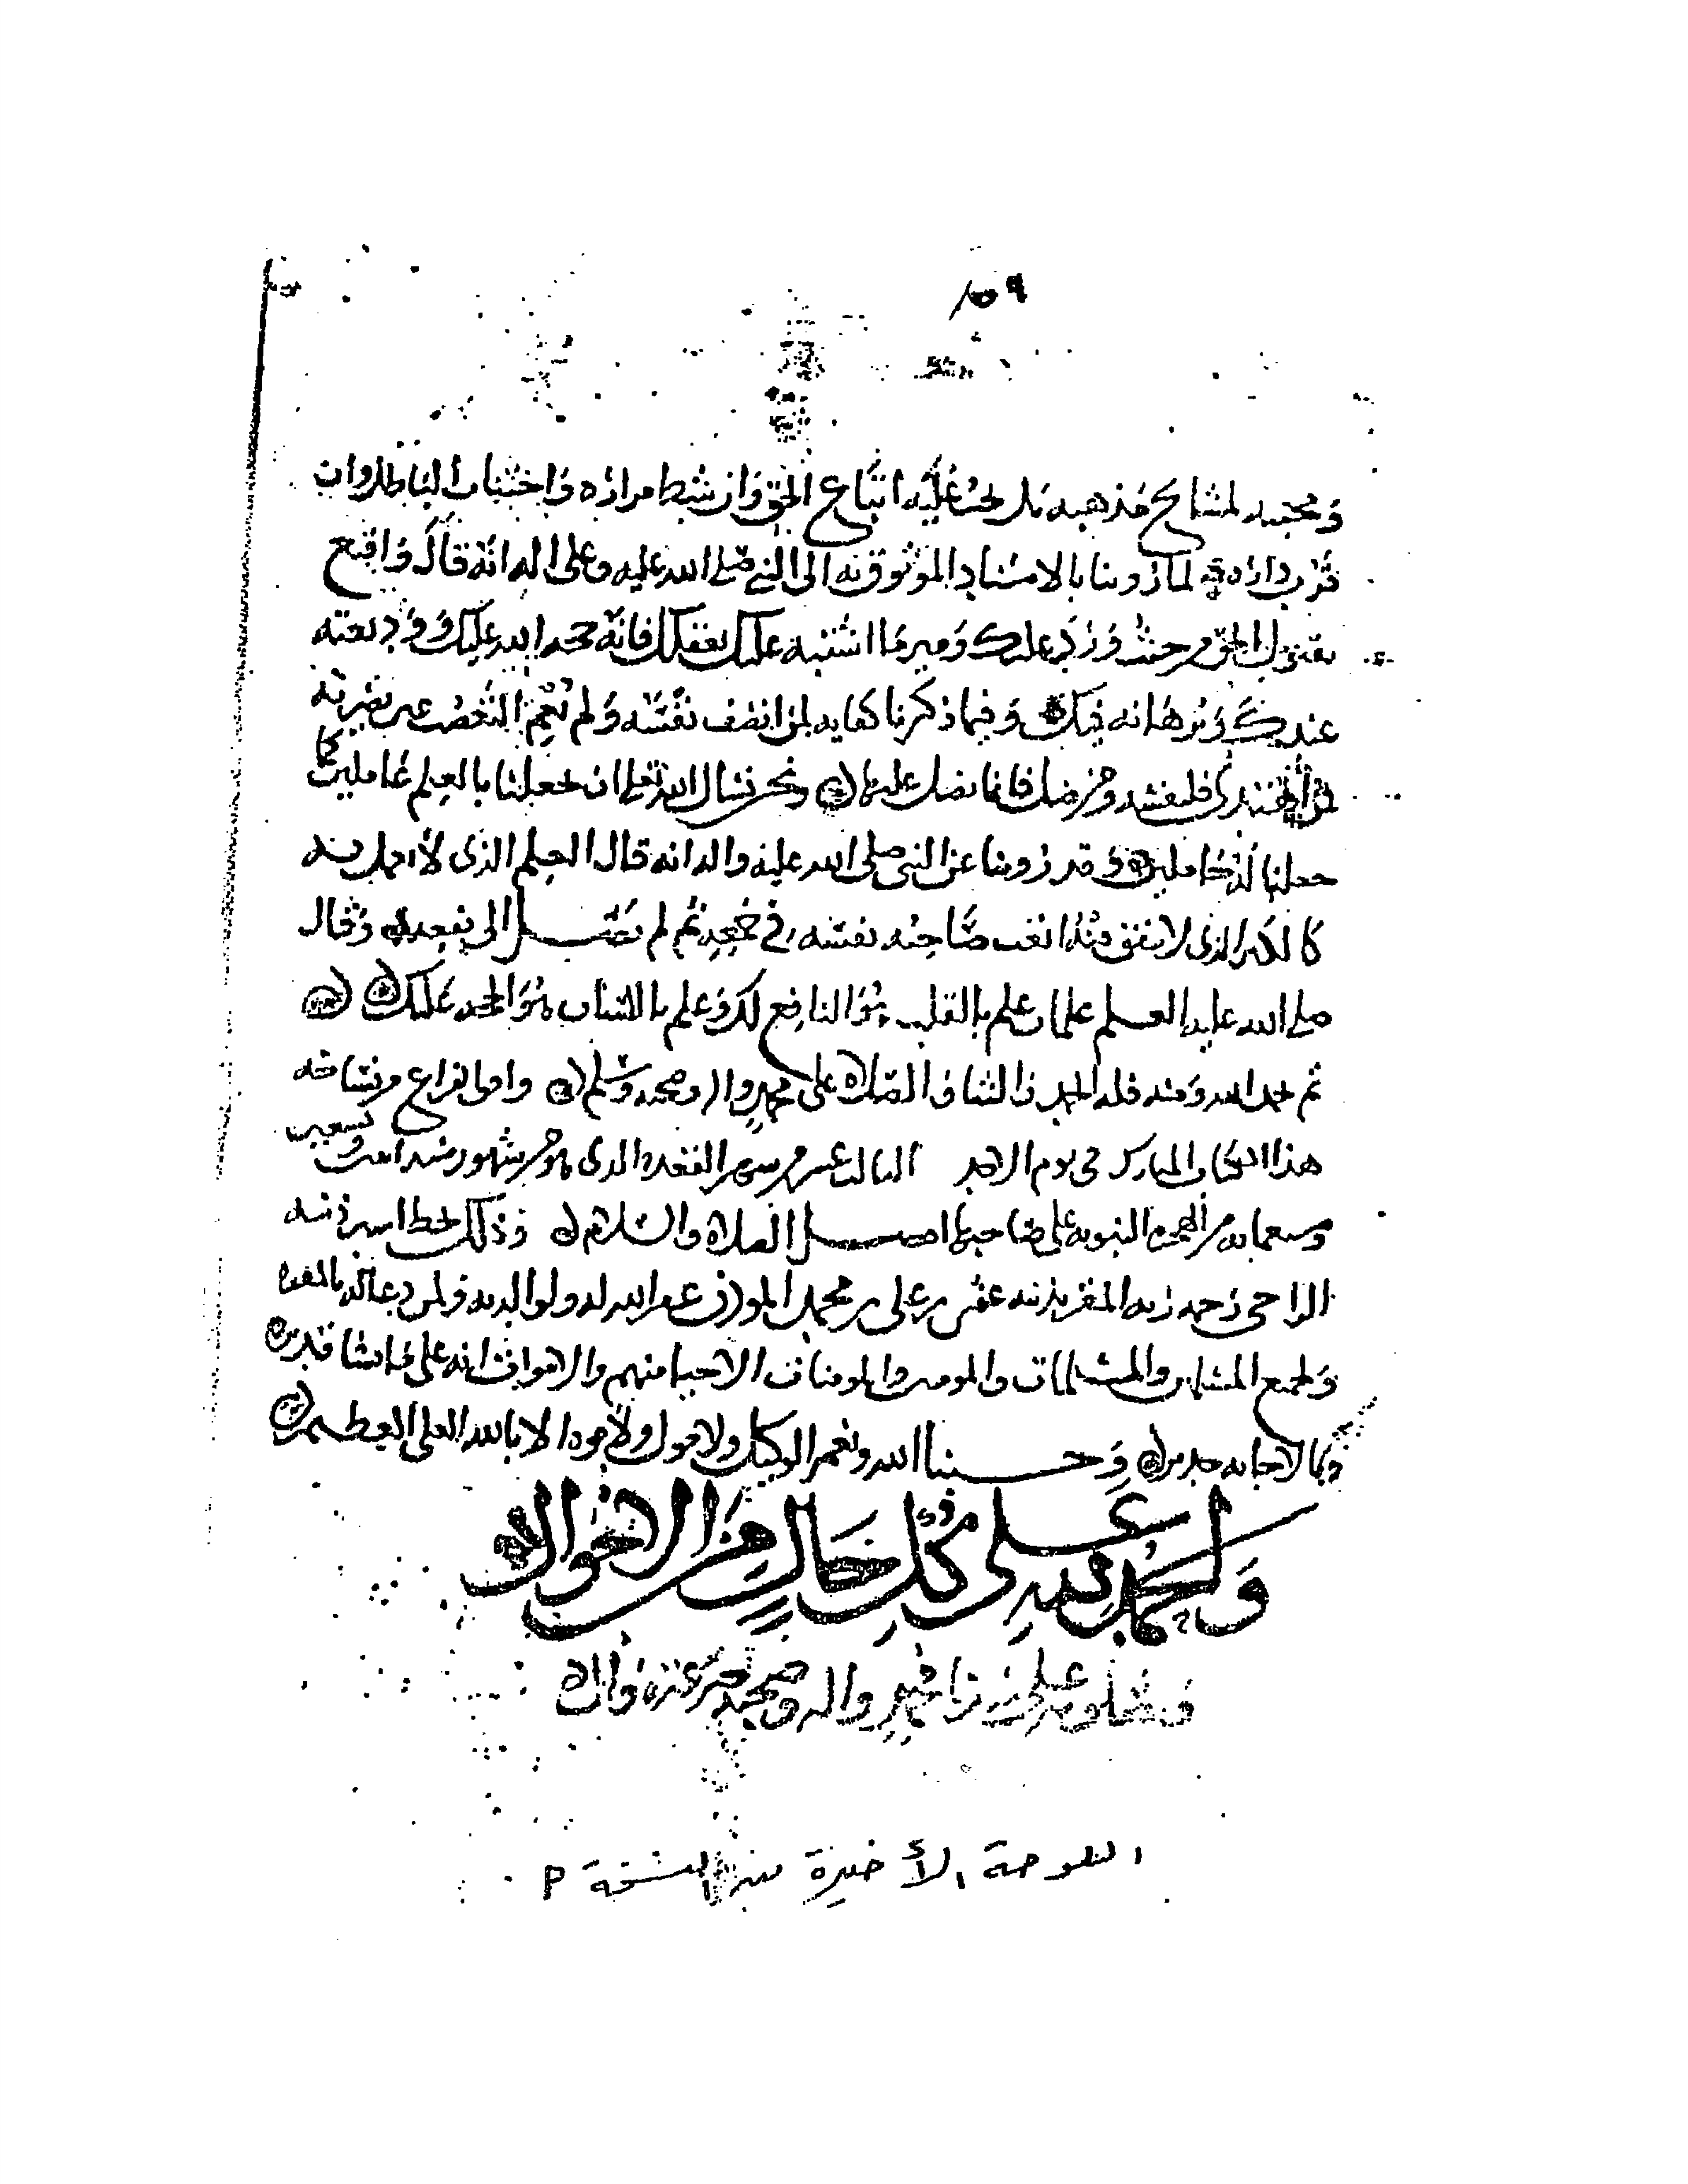 ومحبته لمشايخ مذهبه بل يجب عليه اتباع الحق وان شط مزاره واجتناب الباطل وان
قرب داره لما روينا بالاسناد الموثوق به الى النبي صلى الله عليه وعلى اله انه قال واقنع
بقبول الحق من حيث ورد عليك وميز ما اشتبه عليك بعقلك فانه حجة الله عليك ووديعته
عندك وبرهانه فيك وفيما ذكرنا كفاية لمن انصف نفسه ولم
فمن اهتدى فلنفسه ومن ضل فانما يضل عليها ونحن نسال الله تعلى ان يجعلنا بالعلم عاملين كما
جعلنا له حاملين وقد روينا عن النبي صلى الله عليه واله انه قال العلم الذي لا يعمل به
كالكنز الذي لا ينفق منه اتعب صاحبه نفسه في جمعه ثم لم يصل الى نفعه وقال
صلى الله عليه العلم علمان علم بالقلب هو النافع لك وعلم باللسان هو الحجة عليك
ثم بحمد الله ومنه فله الحمد والثنا والصلاة على محمد واله وصحبه وسلم وافى الفراغ من نساخة
هذا الكتاب المبارك في يوم الاحد الثالث عشر من شهر القعدة الذي هو من شهور سنة وتسعين
وسبعمايه من الهجرة النبويه على صاحبها افضل الصلاة والسلام وذلك بخط اسير ذنبه
الراجي رحمة ربه المقر بذنبه بن علي بن محمد غفر الله له ولوالديه ولمن دعا له بالمغفرة
ولجميع المسلمين والمسلمات والمومنين والمومنات الاحيا منهم والاموات انه على ما يشا قدير
وبالاجابة جدير وحسبنا الله ونعم الوكيل ولا حول ولا قوة الا بالله العلي العظيم
والحمد لله على كل حال من الاحوال
وصلواته على سيدنا محمد واله وصحبه خير
اللوحة الأخيرة من النسخة م